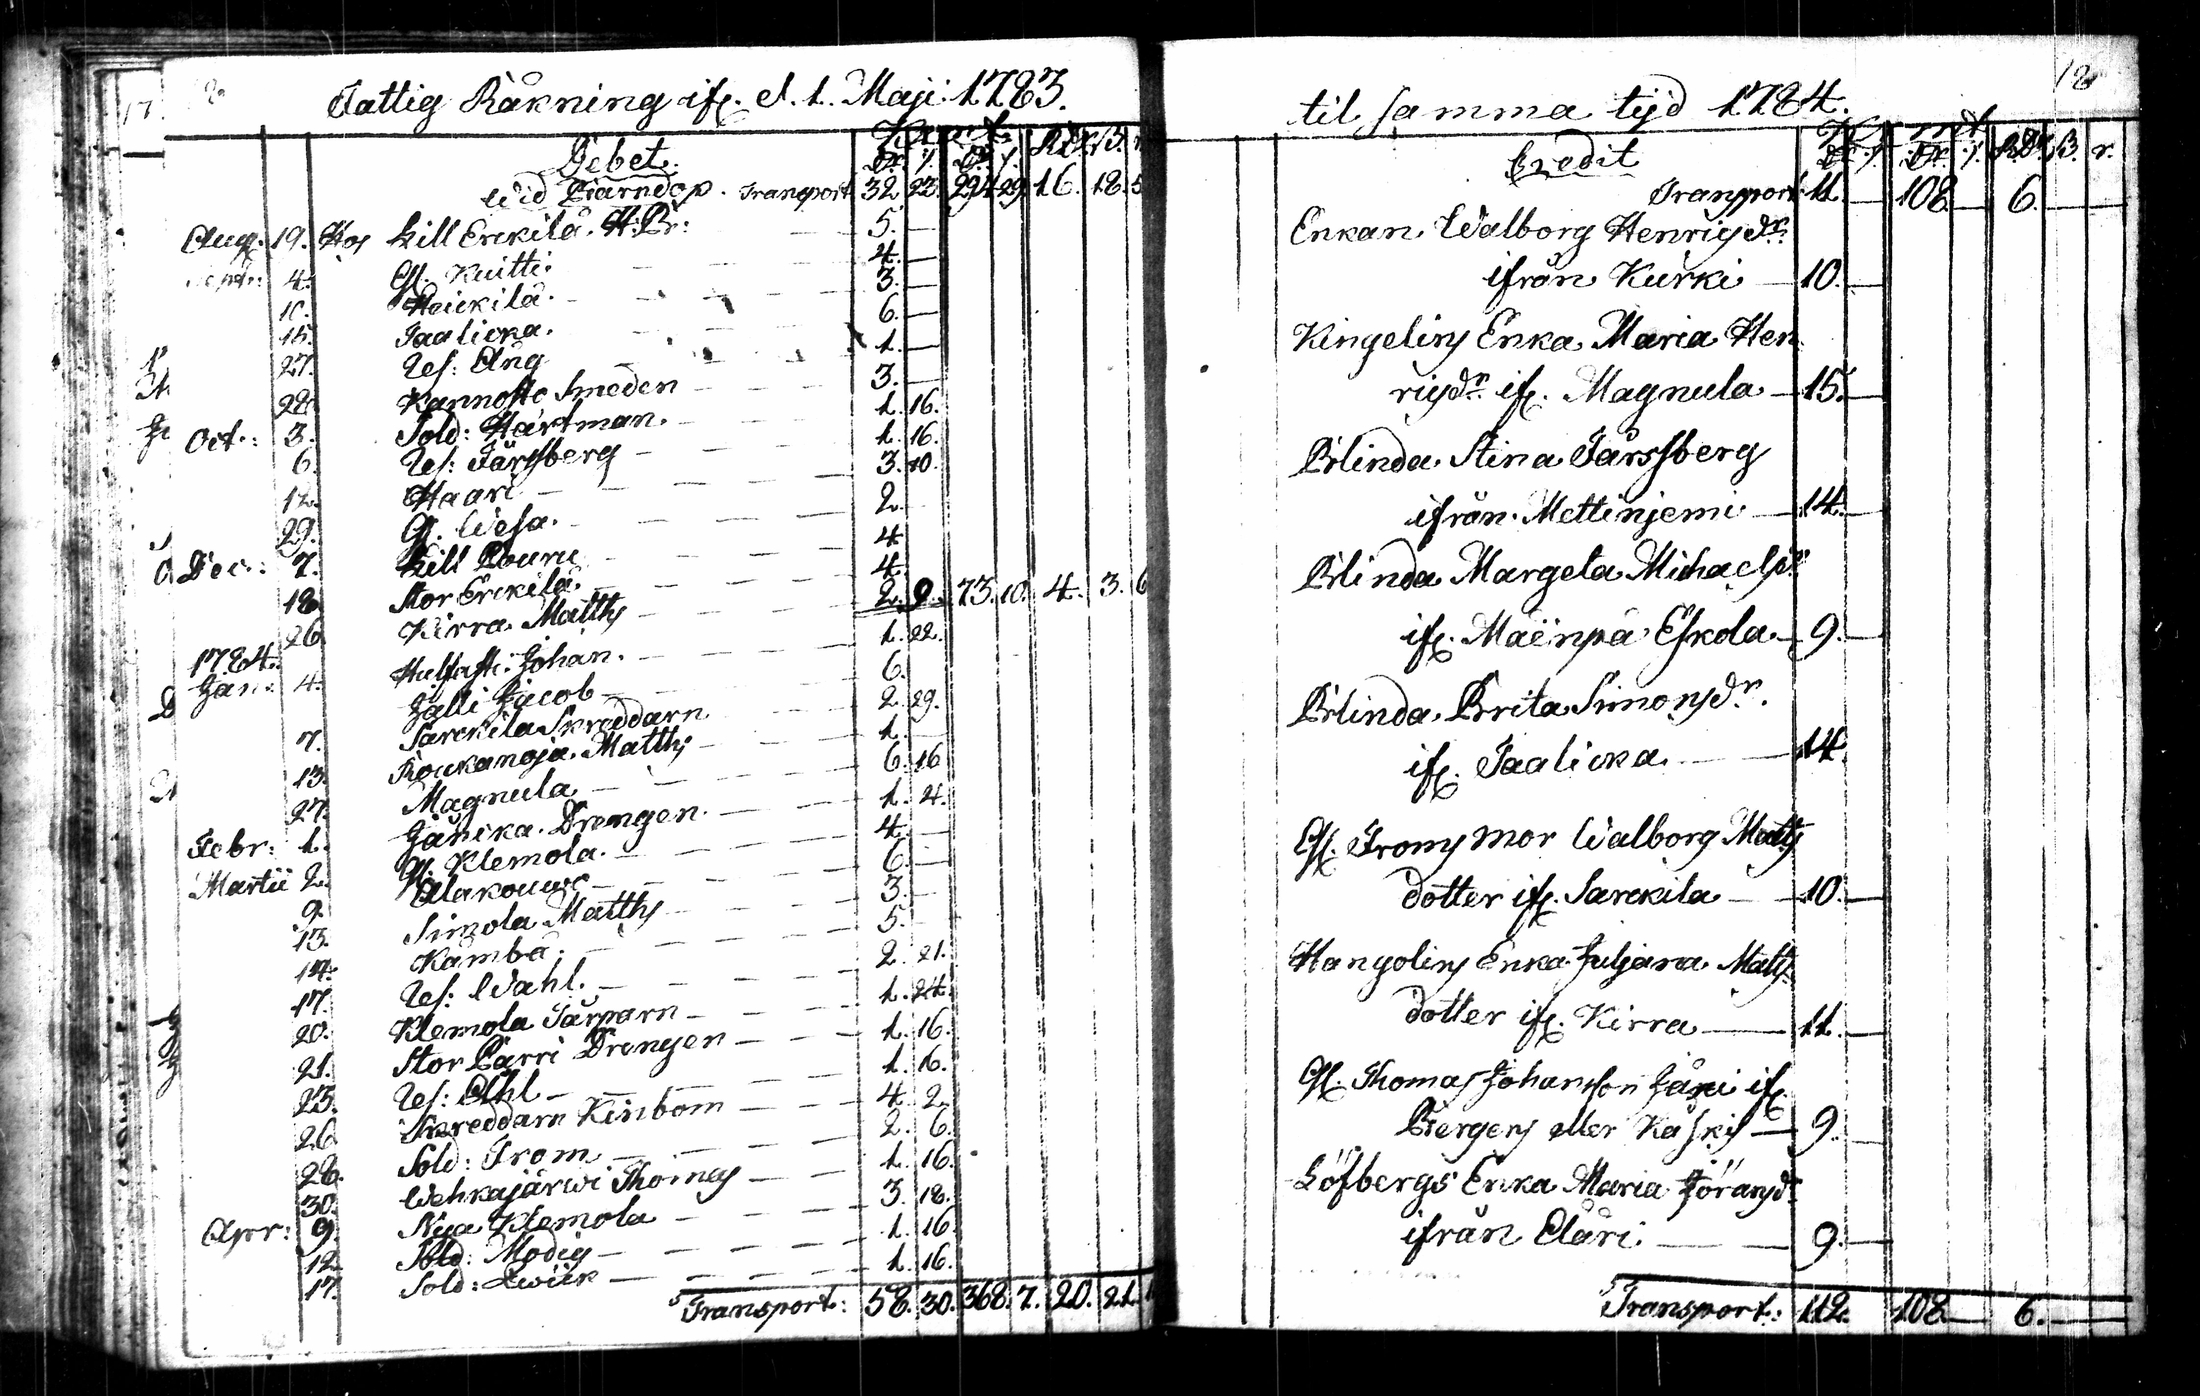 Fattig Räkning ifr. d. 1. Maji 1783.
Debet.
Wid Barndop. Transport 32. 23. 294 29. 16. 18. 5
Aug. 19. Hos Lill Erckilä. H. Br: 5. —
Sept: 4. Gl. Kuitti. 4. —
10. Heickilä. 3. —
15. Jaalicka. 6. —
27. Ref: Ång 1. —
28. Kannosto Smeden 3. —
Oct: 3. Sold: Hartman. 1. 16.
6. Ref: Färssberg 1. 16.
12. Haari 3. 10.
29. Gl. Wesa. 2.
Dec: 7. Lill Pouru 4
18. Stor Erckilä. 4.
26 Kirra Matths 2. 9. 73. 10. 4. 3. 6
1784.
Jan: 4. Johan. 1. 22.
Jalli Jacob 6.
7. Sarckila Skreddarn 2. 29.
13. Matths 1.
27. Magnula 6. 16
Febr: 1. Drengen. 1. 24.
Martii 2. Gl. Klemola. 4.
9. 6.
13. Simola Matths 3.
14. Kamba. 5.
17. Ref: Wahl. 2. 21.
20. Klemola Särparn 1. 24.
21. Stor Pärri Drengen 1. 16.
23. Ref: Ahl 1. 16.
26 Skreddarn Kinbom 4. 2.
28. Sold: From 2. 6.
30. Wehkajärwi Thomas 1. 16.
Apr: 9. Nya Klemola 3. 18.
12. Sold: Modig 1. 16.
17. Sold: Qwick 1. 16.
Transport: 58. 30. 368. 7. 20. 21. 1
18
til samma tijd 1784.
Credit
Transport 11. — 108. — 6. —
Enkan Walborg Henrigsdr
ifrån Kurki — 10. —
Kingelins Enka Maria Hen
rigsdr. ifr. Magnula — 15. —
Blinda Stina Färssberg
ifrån Mettinjemi — 14. —
Blinda Margeta Michaelsdr
ifr. Mäenpä Eskola — 9. —
Blinda Brita Simonsdr.
ifr. Jaalicka — 14.
Gl. Froms Mor Walborg Matts
dotter ifr. Sarckila — 10. —
Hangolins Enka Juljana Matts
dotter ifr. Kirra — 11. —
Gl. Thomas Johansson Jäni ifr.
Bergers eller Kaskis — 9. —
Löfbergs Enka Maria Jöransdr
ifrån — 9. —
Transport: 112. 108 — 6. —